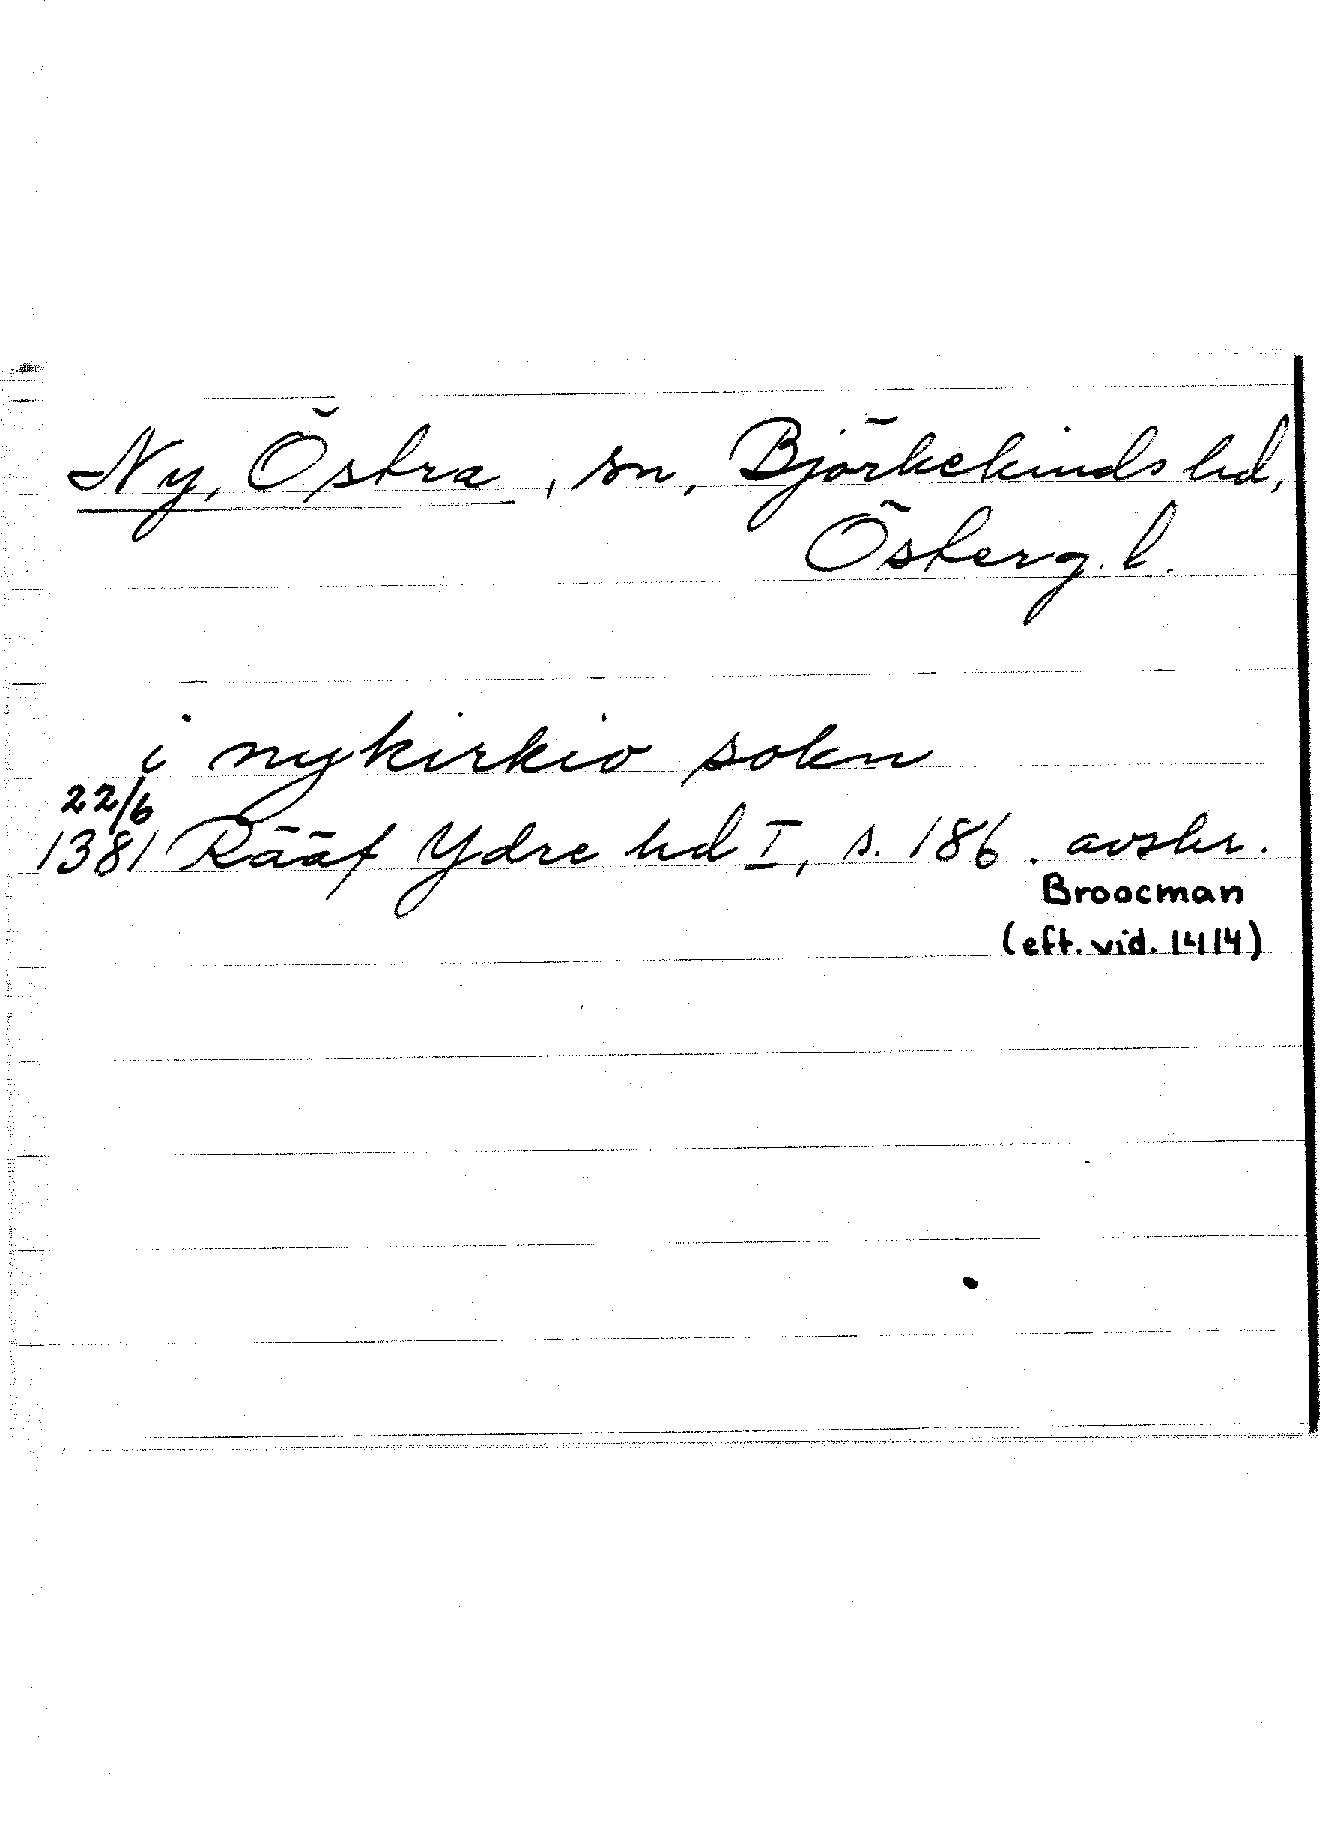 Ny, Östra, sn, Björkekinds hd,
Österg. l.
i nykirkio sokn
22/6
1381 Rääf Ydre hd I, s. 186. avskr.
Broocman
(eft. vid. 1414)